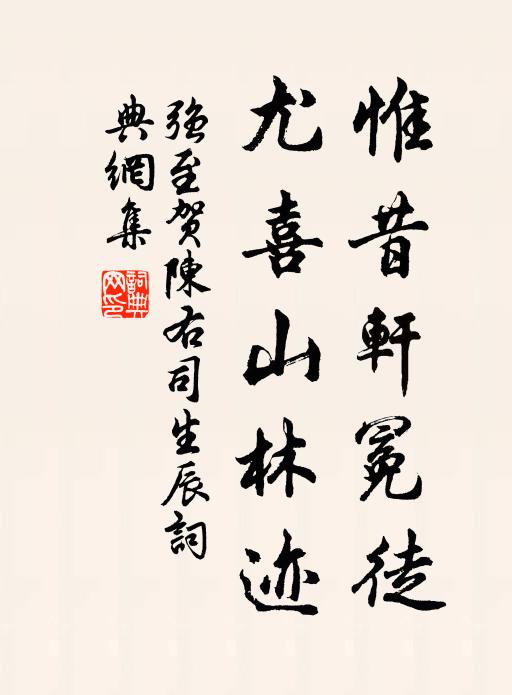 惟昔軒冕徒
尤喜山林迹
強至賀陳右司生辰詞
典網集
詞典網印